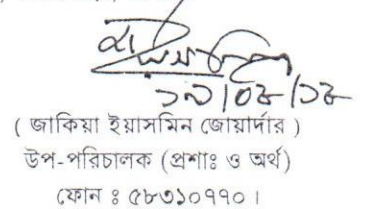 ১৯/০৪/১৫
( জাকিয়া ইয়াসমিন জোয়ার্দার )
উপ-পরিচালক (প্রশাঃ ও অর্থ)
ফোন ঃ ৫৮৩১০৭৭০।